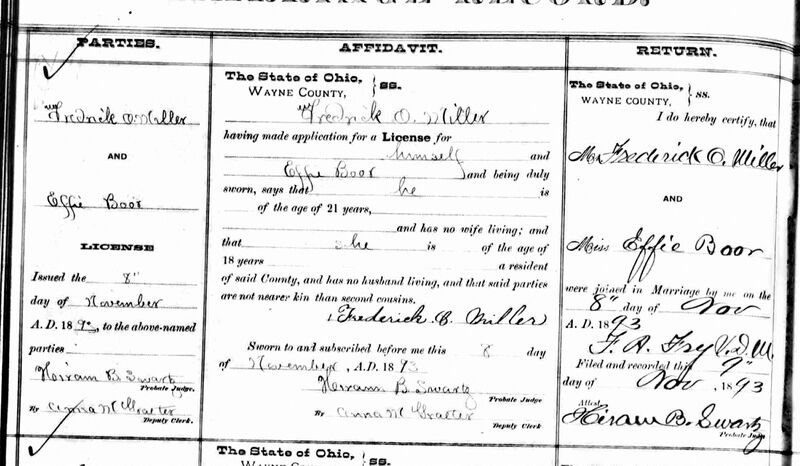 RECORD.
PARTIES.
Fredrick O. Miller
AND
Effie Boor
LICENSE
Issued the 8"
day of November
A. D. 1893, to the above-named
parties
Hiram B. Swartz
Probate Judge.
By Anna M
Deputy Clerk.
AFFIDAVIT.
The State of Ohio,
WAYNE COUNTY, } ss.
Fredrick O. Miller
having made application for a License for
himself and
Effie Boor and being duly
sworn, says that he is
of the age of 21 years,
and has no wife living; and
that she is of the age of
18 years a resident
of said County, and has no husband living, and that said parties
are not nearer kin than second cousins.
Frederick O. Miller
Sworn to and subscribed before me this 8 day
of November, A.D. 1893
Hiram B. Swartz
Probate Judge
By Anna M
Deputy Clerk.
RETURN.
The State of Ohio,
WAYNE COUNTY, } ss.
I do hereby certify, that
Mr Frederick O. Miller
AND
Miss Effie Boor
were joined in Marriage by me on the
8" day of Nov
A. D. 1893
F. A. Fry V. D. M.
Filed and recorded this 9"
day of Nov, 1893
Attest
Hiram B. Swartz
Probate Judge
The State of Ohio,
WAYNE COUNTY, } ss.
The State of Ohio,